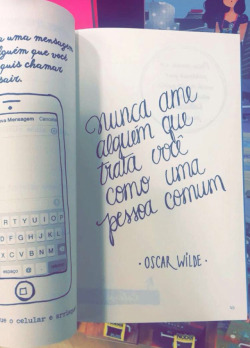 a uma mensagem
alguém que você
quis chamar
sair.
Mensagem
Cancelar
R T Y U I O P
D F G H J K L
C V B N M
espaço
o celular e arrisque
Nunca ame
alguém que
trata você
como uma
pessoa comum
· OSCAR WILDE ·